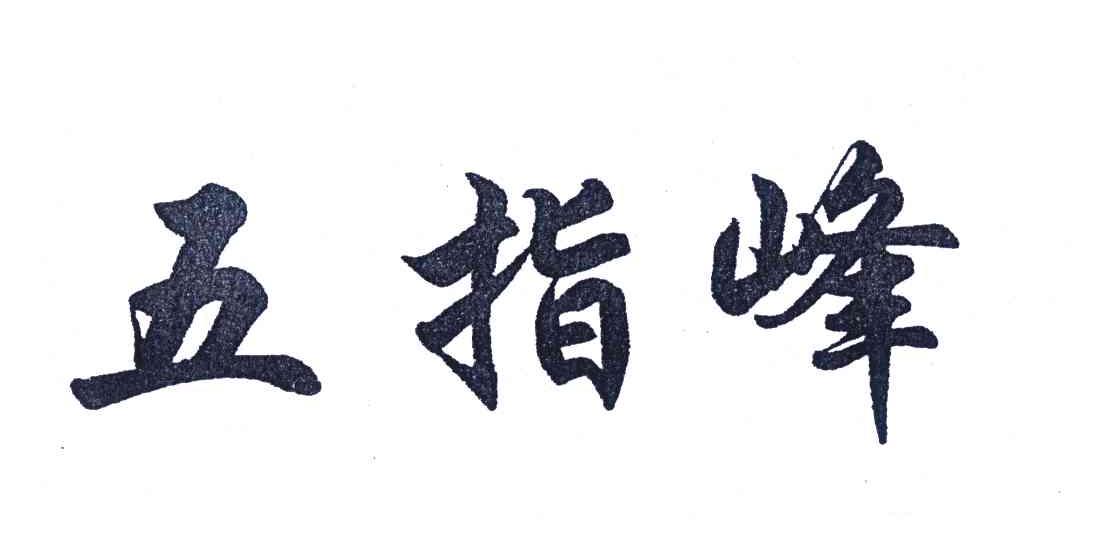 五指峰